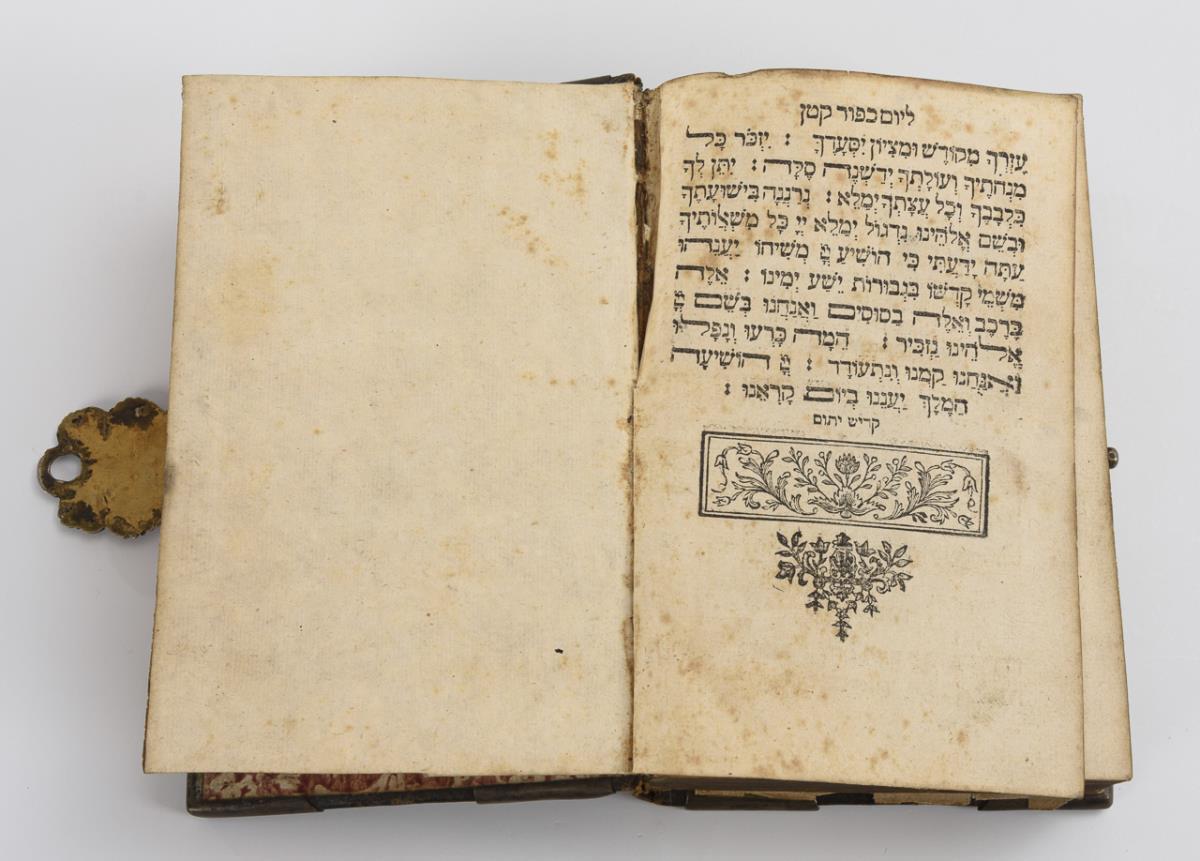 ליום כפור קטן
עֶזְרְךָ מִקּוֹדֶשׁ וּמִצִּיּוֹן יִסְעָדֶךָּ : יִזְכֹּר כָּל
מִנְחֹתֶיךָ וְעוֹלָתְךָ יְדַשְּׁנֶה סֶלָה : יִתֶּן לְךָ
כִלְבָבֶךָ וְכָל עֲצָתְךָ יְמַלֵּא : נְרַנְּנָה בִּישׁוּעָתֶךָ
וּבְשֵׁם אֱלֹהֵינוּ נִדְגּוֹל יְמַלֵּא יְיָ כָּל מִשְׁאֲלוֹתֶיךָ
עַתָּה יָדַעְתִּי כִּי הוֹשִׁיעַ יְיָ מְשִׁיחוֹ יַעֲנֵהוּ
מִשְּׁמֵי קָדְשׁוֹ בִּגְבוּרוֹת יֵשַׁע יְמִינוֹ : אֵלֶּה
בָרֶכֶב וְאֵלֶּה בַסּוּסִים וַאֲנַחְנוּ בְּשֵׁם יְיָ
אֱלֹהֵינוּ נַזְכִּיר : הֵמָּה כָּרְעוּ וְנָפָלוּ
וַאֲנַחְנוּ קַמְנוּ וַנִּתְעוֹדָד : יְיָ הוֹשִׁיעָה
הַמֶּלֶךְ יַעֲנֵנוּ בְיוֹם קָרְאֵנוּ :
קדיש יתום